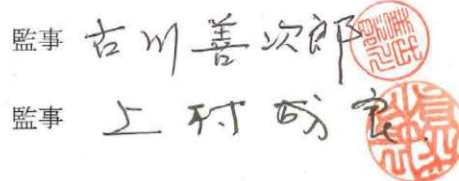 監事 古川善次郎
監事 上村